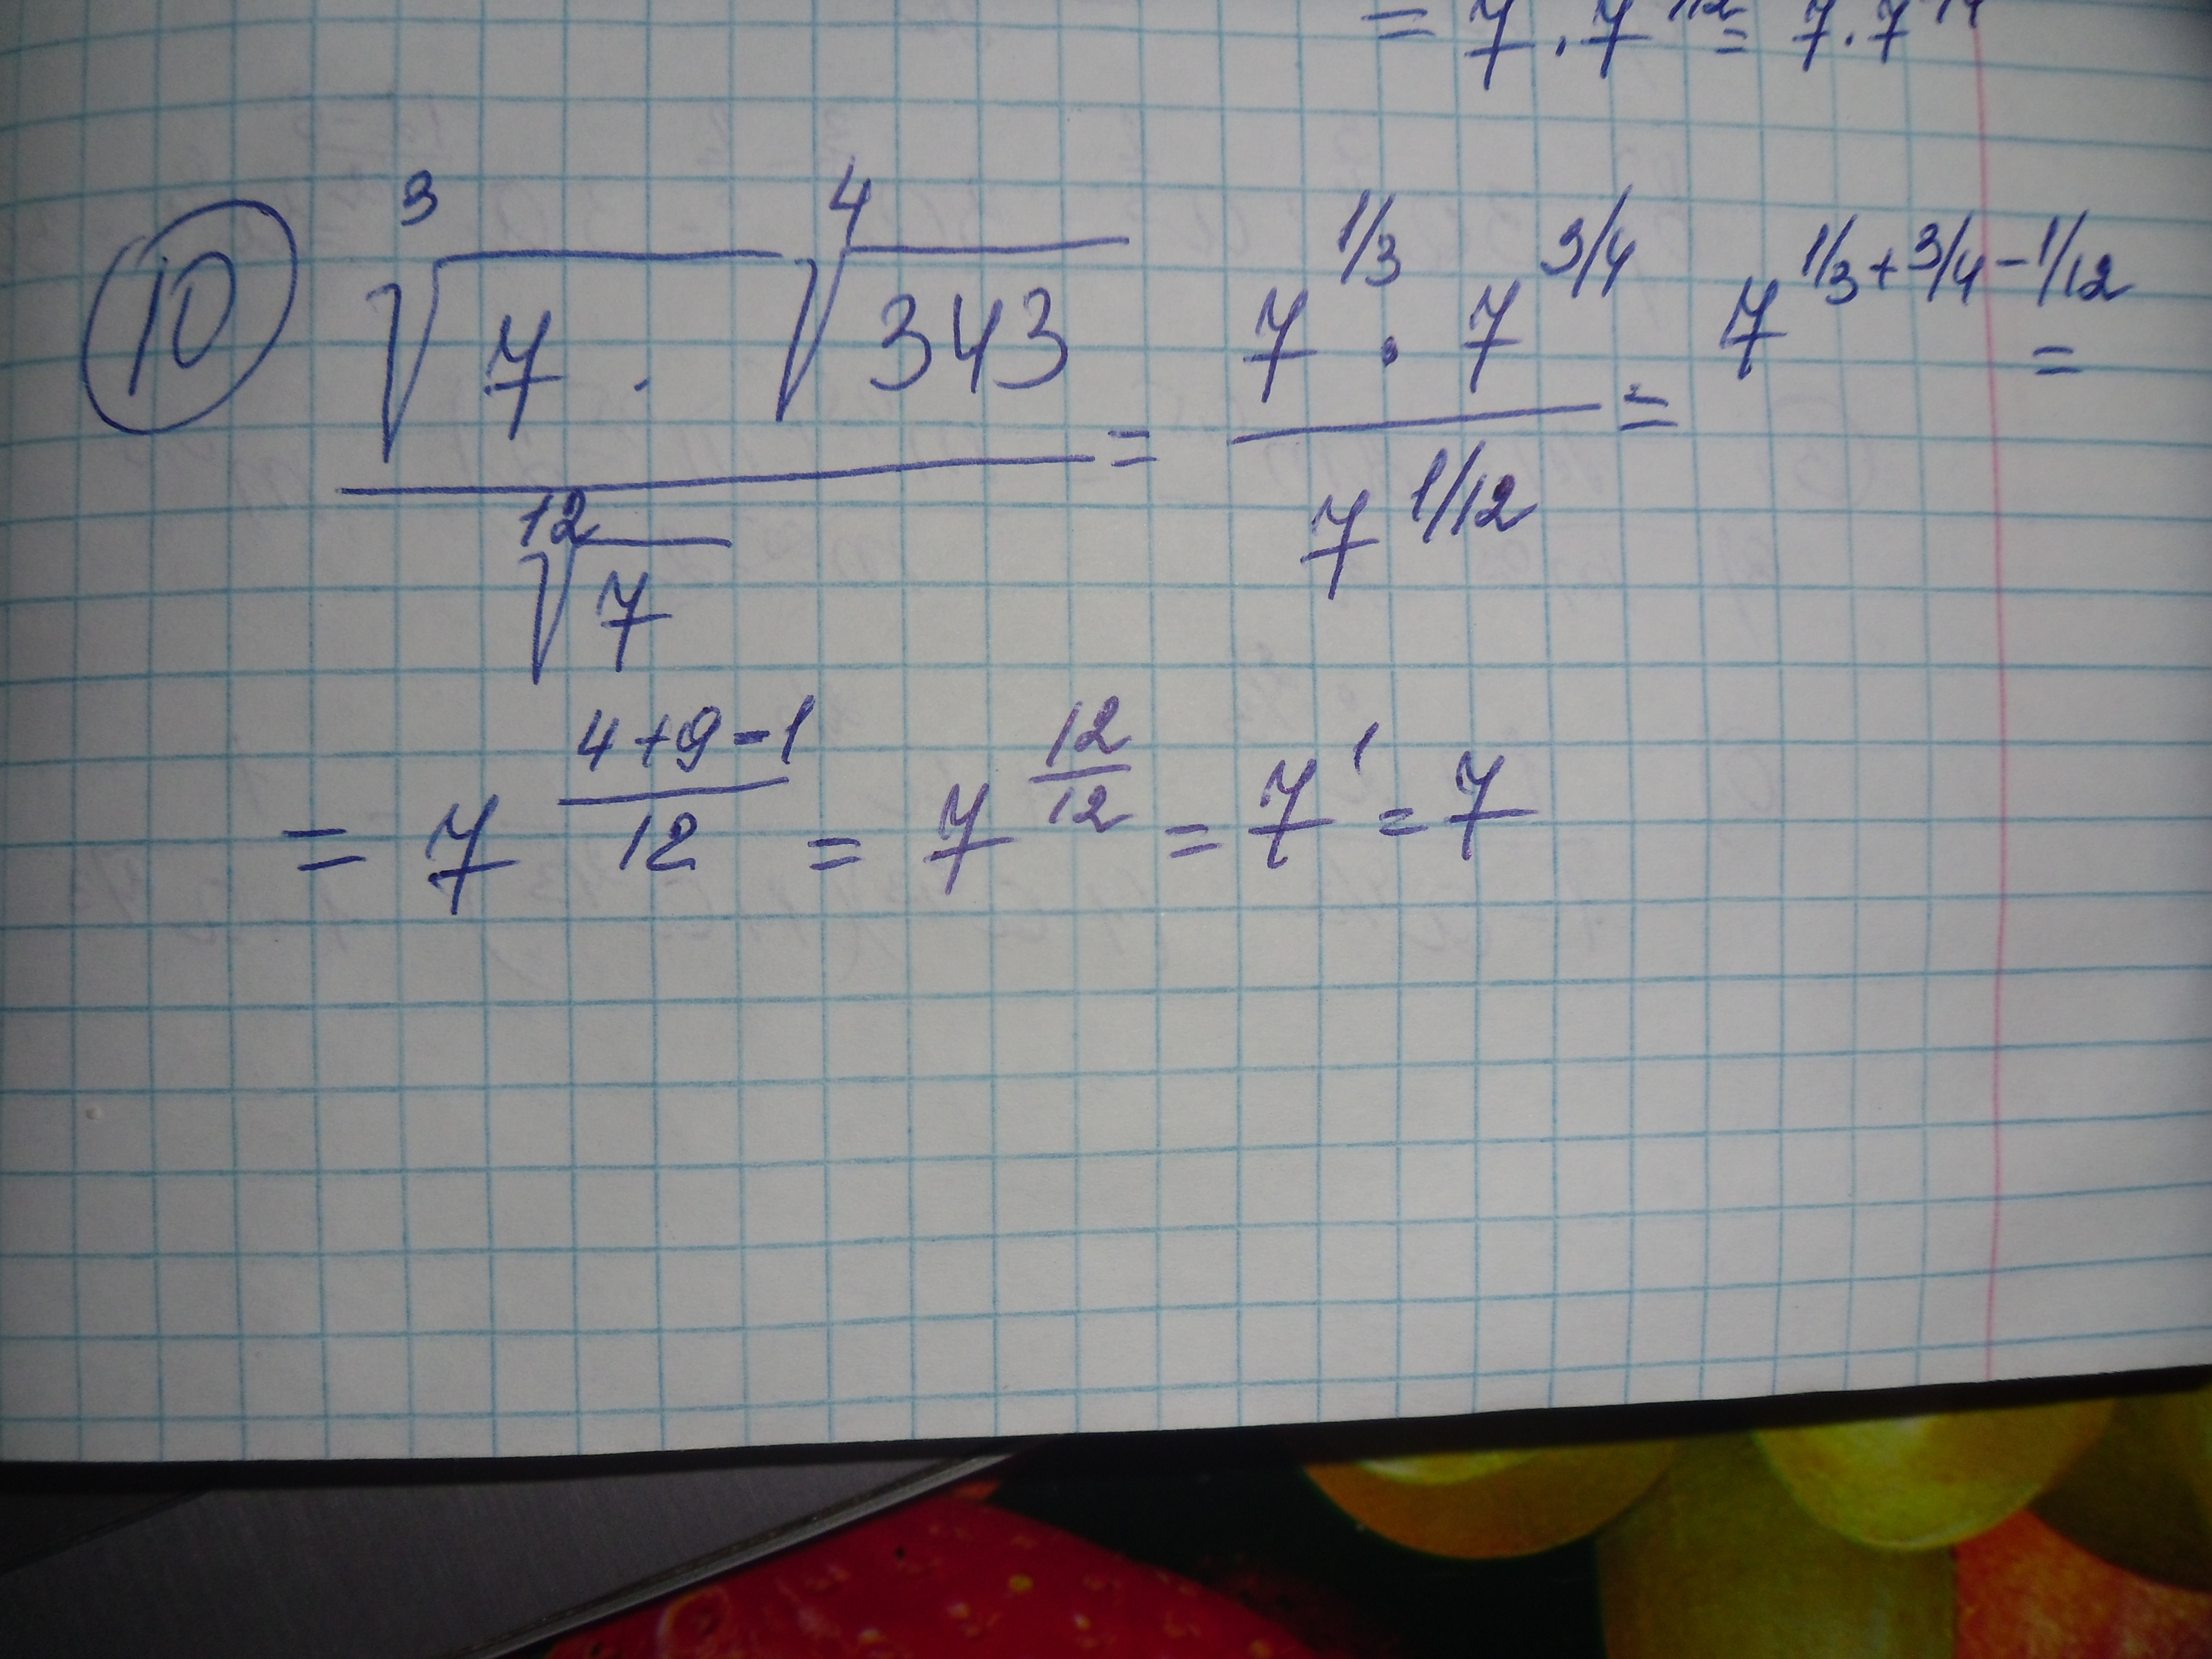 = 7 · 7 = 7 · 7
10 ∛7 · ∜343 / ¹²√7 = 7^1/3 · 7^3/4 / 7^1/12 = 7^1/3+3/4-1/12 =
= 7^(4+9-1)/12 = 7^12/12 = 7^1 = 7